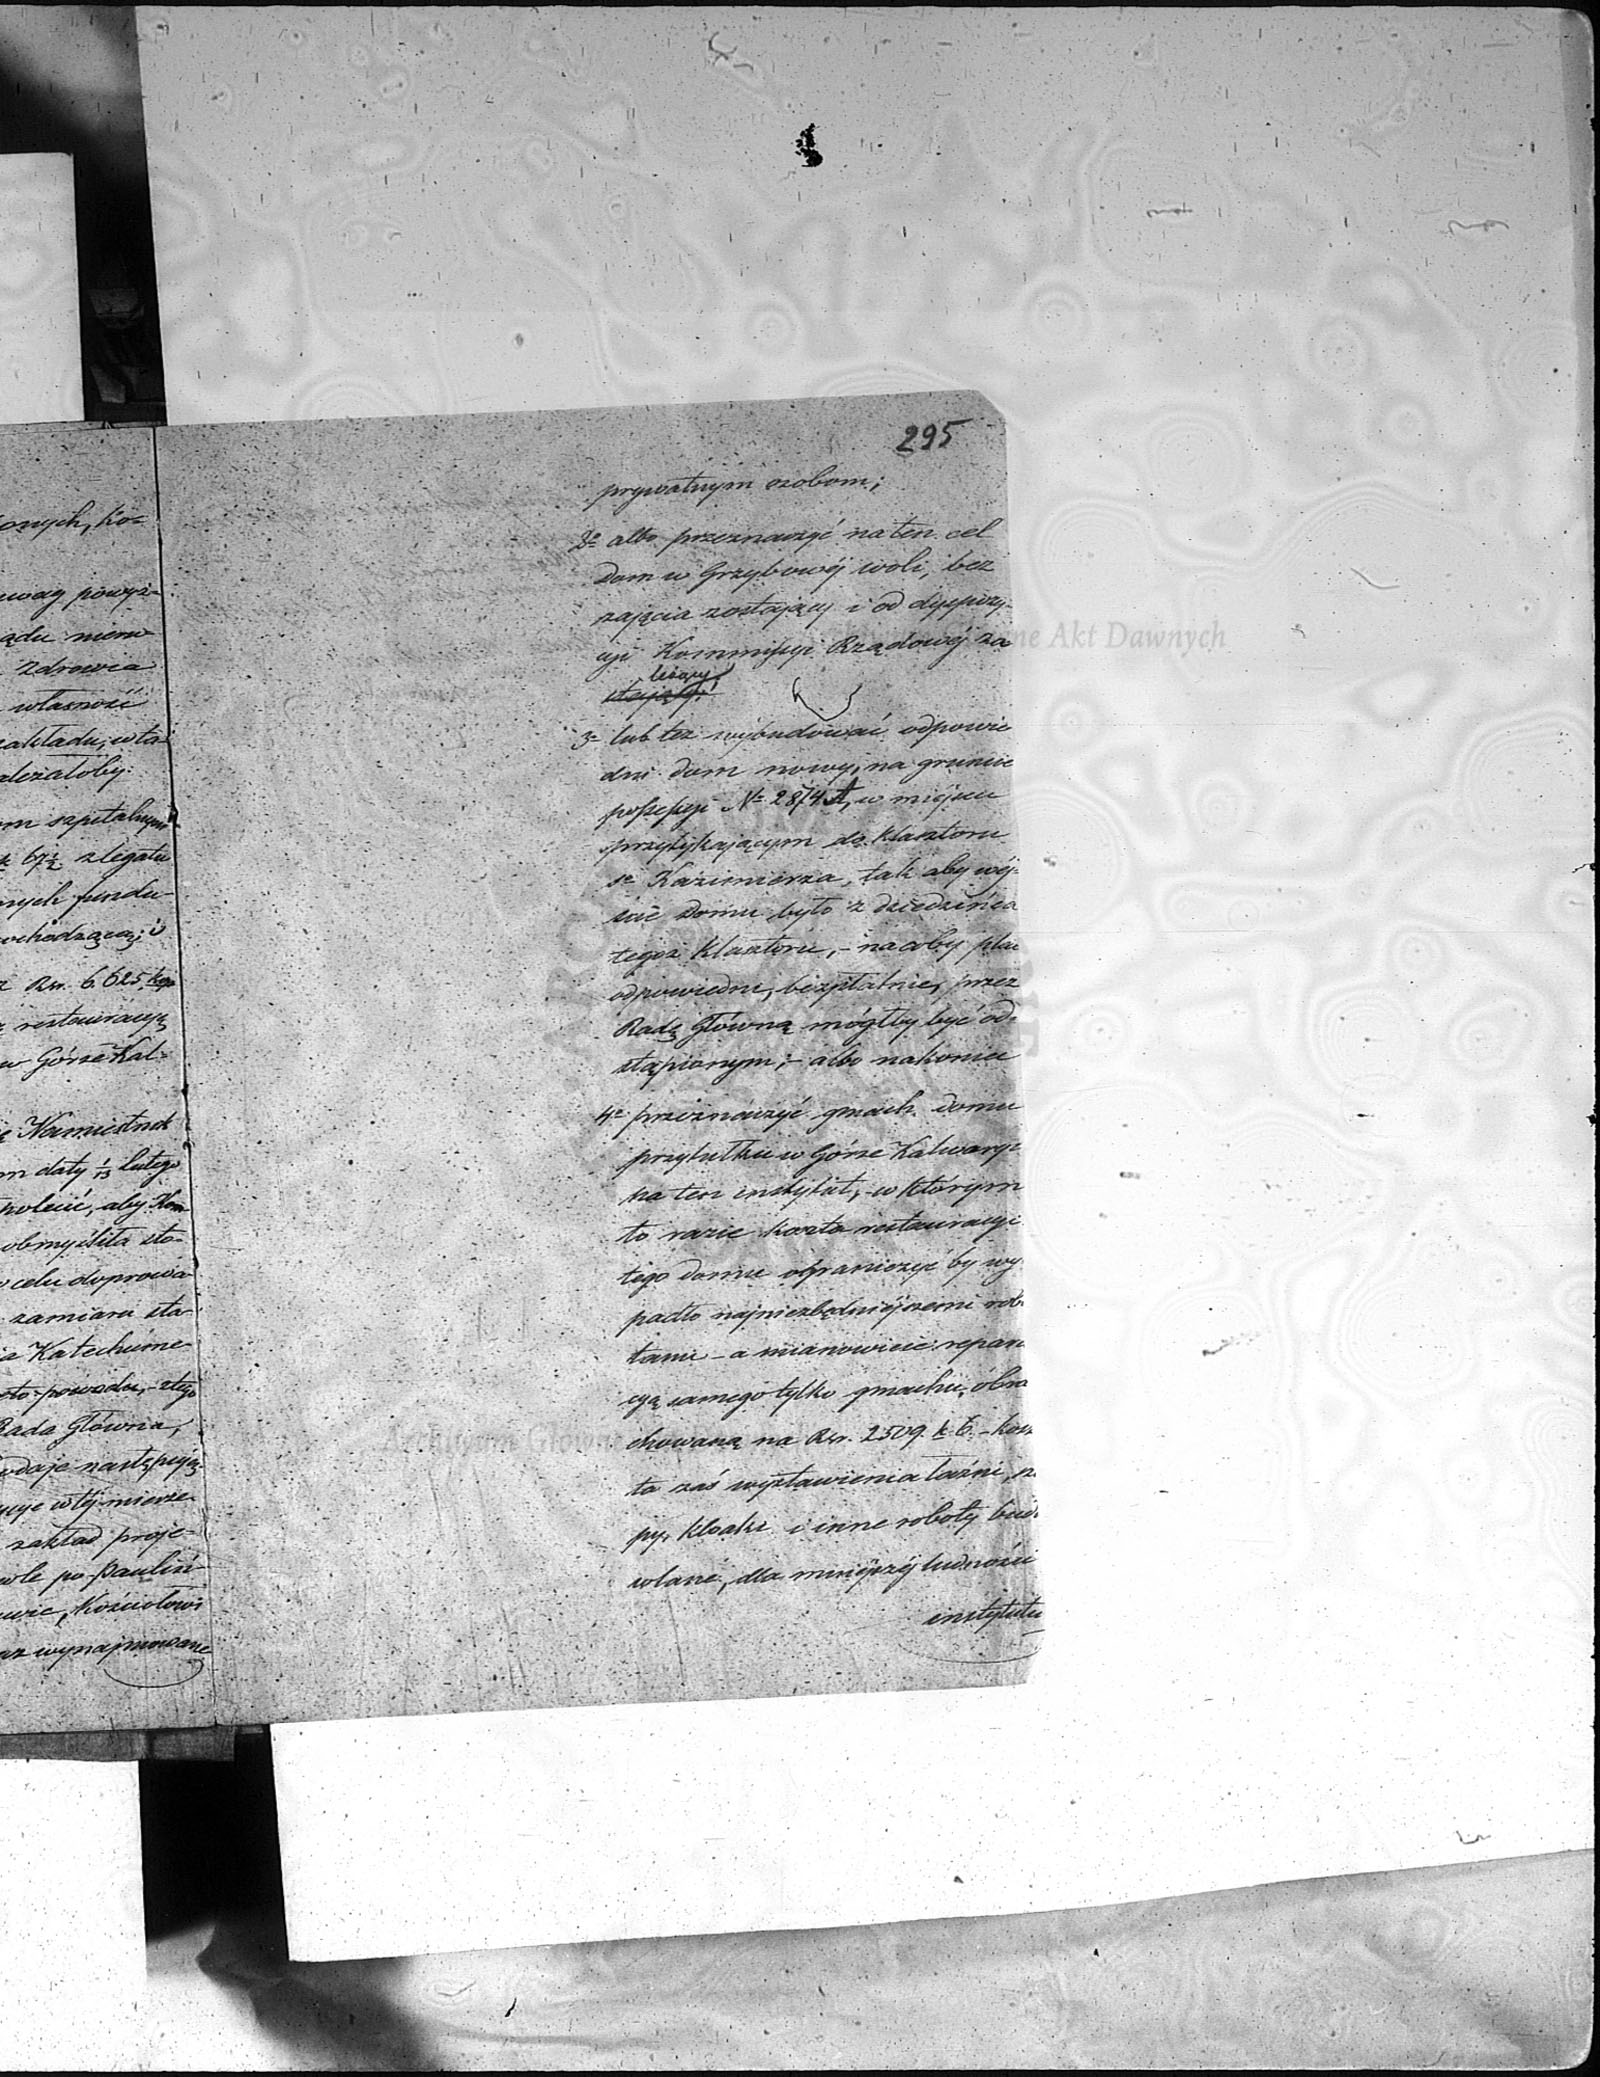 onych, ko=
uwag powyż=
ądu nieru
zdrowia
własność
zakładu, w ta
ależałoby.
m szpitalnym
k 67½ z legatu
nych fundu-
ochodzącą; i
Rsr. 6.625, kop
restauracyą
w Górze Kal=
Namiestnik
m daty 1/13 Lutego
polecić, aby Kom
obmyśliła sto-
celu doprowa
zamiaru sta
Katechume
powodu, z tego
Rada Główna,
odaje następują
w tej mierze
zakład proje=
po Pauliń
Kościołowi
wynajmowane
295
prywatnym osobom;
2o albo przeznaczyć na ten cel
Dom w Grzybowéj woli, bez
zajęcia zostający i od dyspozy-
cyi Kommissyi Rządowéj za
leżący
stający;
3o lub też wybudować odpowie
dni dom nowy, na gruncie
possessyi No 2874 A, w miejscu
przytykającym do Klasztoru
so Kazimierza, tak aby wéj-
ście Domu było z dziedzińca
tegoż Klasztoru, - na coby plac
odpowiedni, bezpłatnie, przez
Radę Główną mógłby być od=
stąpionym; - albo nakoniec
4o przeznaczyć gmach domu
przytułku w Górze Kalwaryi
na ten instytut, w którym
to razie koszta restauracyi
tego domu ograniczyć by wy
padło najniezbędniéjszemi robo
tami - a mianowicie: repara
cyą samego tylko gmachu, obra
chowaną na Rsr. 2509. k 6. - kosz
ta zaś wystawienia łaźni, szo
py, kloaki i inne roboty budo
wlane, dla mniéjszéj ludności
instytutu
Archiwum Główne Akt Dawnych